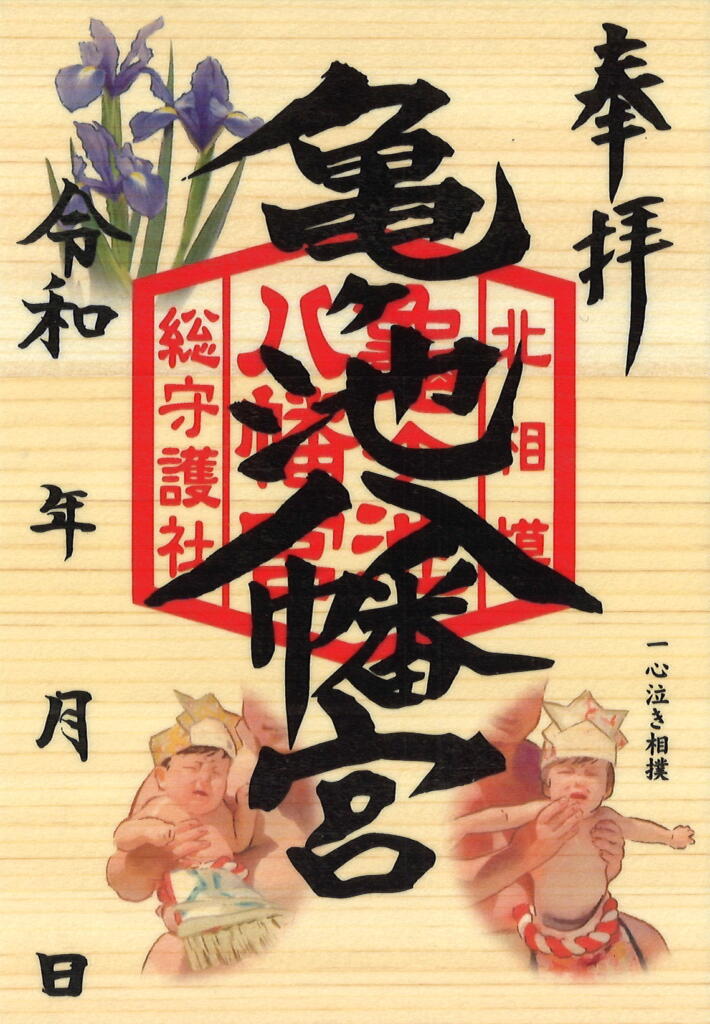 奉拝
亀ヶ池八幡宮
北相模
亀ヶ池
八幡宮
総守護社
令和 年 月 日
一心泣き相撲